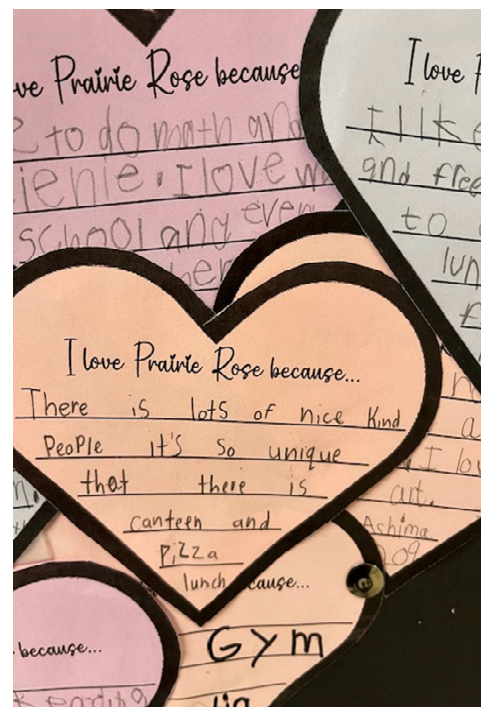 ve Prairie Rose because
to do math and
ienie. I love
school and even
her
I love
I like
and free
to
lun
I love Prairie Rose because...
There is lots of nice kind
People it's so unique
that there is
canteen and
Pizza
lunch
a
I lov
art.
Ashima
209
cause...
GYM
because...